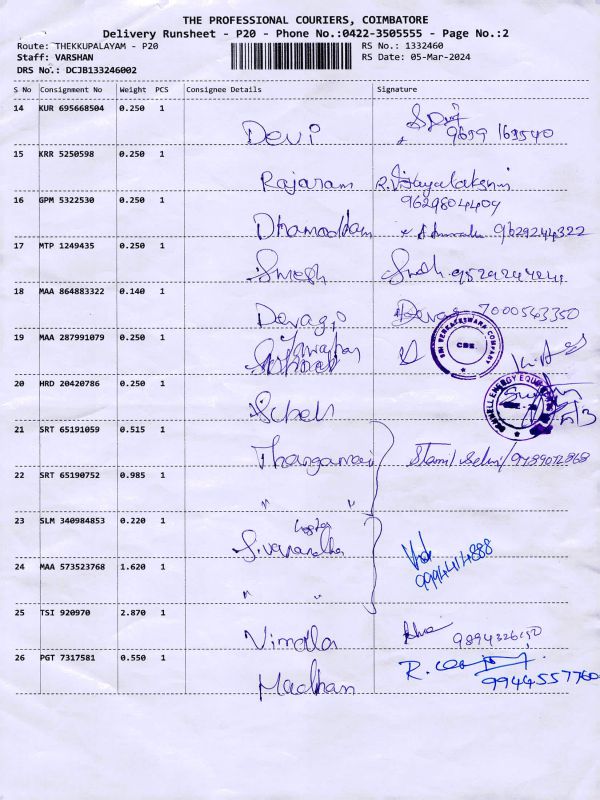 THE PROFESSIONAL COURIERS, COIMBATORE
Delivery Runsheet - P20 - Phone No.:0422-3505555 - Page No.:2
Route: THEKKUPALAYAM - P20 RS No.: 1332460
Staff: VARSHAN RS Date: 05-Mar-2024
DRS No.: DCJB133246002
S No Consignment No Weight PCS Consignee Details Signature
14 KUR 695668504 0.250 1
Devi
15 KRR 5250598 0.250 1
Rajaram R. Vijayalakshmi
16 GPM 5322530 0.250 1 9629804409
9629244322
17 MTP 1249435 0.250 1
Suresh
18 MAA 864883322 0.140 1
Devagi Devagi 7000543350
19 MAA 287991079 0.250 1 SRI VENKATESWARA COMPANY CBE.
20 HRD 20420786 0.250 1
21 SRT 65191059 0.515 1
Thangamani 9789072868
22 SRT 65190752 0.985 1
" "
23 SLM 340984853 0.220 1
24 MAA 573523768 1.620 1 9994414888
" "
25 TSI 920970 2.870 1
Vimala
26 PGT 7317581 0.550 1 R.
Madhan 9944557760